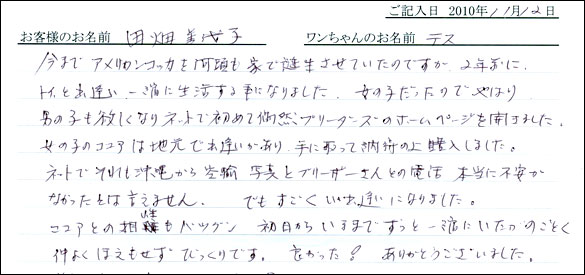 ご記入日 2010年 11月12日
お客様のお名前 田畑 美代子 ワンちゃんのお名前 テス
今まで アメリカンコッカを何頭も家で誕生させていたのですが、2年前に、
トイと出逢い、一緒に生活する事になりました。女の子だったので やはり
男の子も欲しくなりネットで初めて偶然、ブリーダーズのホームページを開きました。
女の子のココアは地元で出逢いがあり、手に取って納得の上購入しました。
ネットで それも沖縄から空輸 写真とブリーダーさんとの電話 本当に不安が
なかったとは言えません。 でも すごくいい出逢いになりました。
ココアとの相性もバツグン 初日から いままでずっと一緒にいたかのごとく
仲よく ほえもせず びっくりです。 良かった! ありがとうございました。